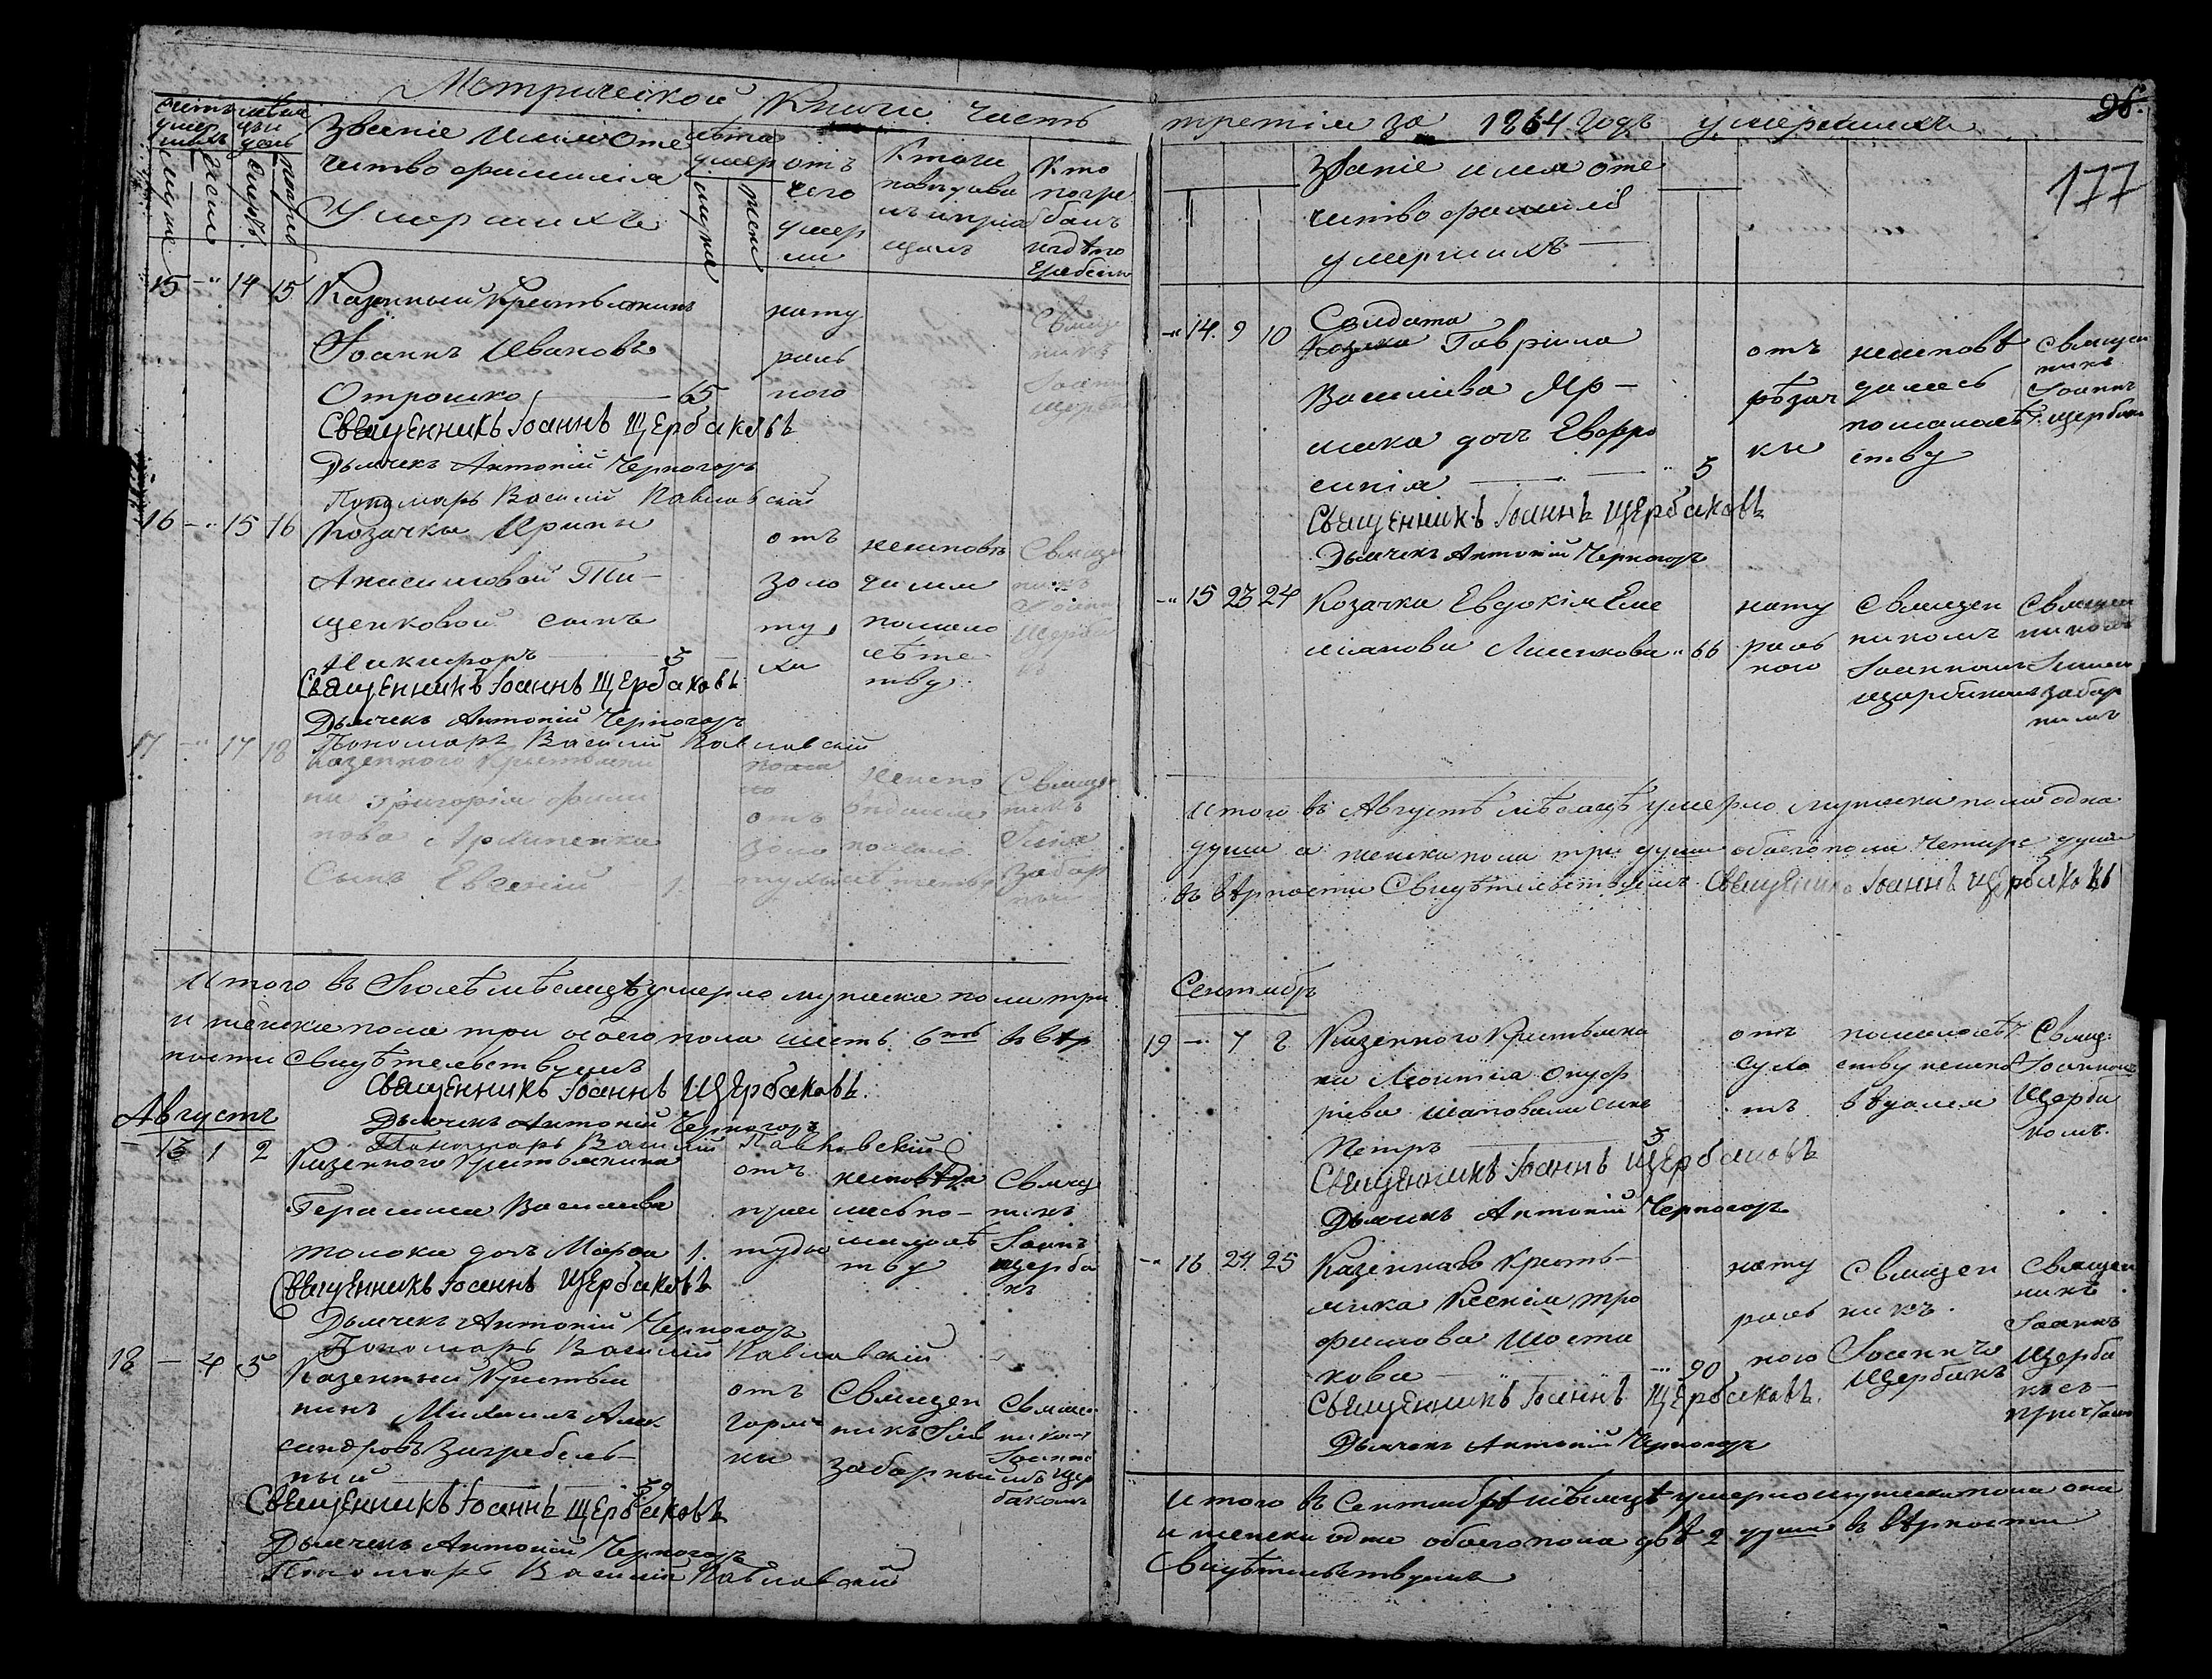 Метрической Книги Часть
третія за 1864 Годъ умершихъ
98.
177
Званіе Имя Оте
чество фамилія
Умершихъ
отъ
чего
умер
ли
Кто
погре
балъ
Званіе имя оте
чество фамилія
умершихъ
15 14 15 Казенный Крестьянинъ
Іоаннъ Ивановъ
Отрошко 65
нату
раль
ного
Священникъ Іоаннъ Щербаковъ
Дьячекъ Антоній Черногоръ
Пономарь Василій Павловскій
16 15 16 Козачки Ирины
Анисимовой Ти-
щенковой сынъ
Никифоръ 5
отъ
золо
ту
хи
неисповѣ
данъ
помало
лѣтс
тву
Священникъ Іоаннъ Щербаковъ
Дьячекъ Антоній Черногоръ
Пономарь Василій Павловскій
17 17 18 Казенного Крестьяни
на Григорія Филип
пова Архипенка
Сынъ Евгеній 1.
отъ
золо
Свяще
никъ
Илія
Забар
Итого въ Іюлѣ мѣсяцѣ умерло мужеска пола три
и женска пола три обоего пола шесть 6ть въ вѣр
ности Свидѣтельствуемъ
Священникъ Іоаннъ Щербаковъ.
Дьячекъ Антоній Черногоръ
Пономарь Василій Павловскій
Августъ
13 1 2 Казенного Крестьянина
Герасима Васильева
Толока дочь Марфа 1.
отъ
прос
туды
неисповѣда
лась по-
малолѣ
тву
Свящ
никъ
Іоаннъ
Щерба
къ
Священникъ Іоаннъ Щербаковъ
Дьячекъ Антоній Черногоръ
Пономарь Василій Павловскій
18 4 5 Казенный Крестья
нинъ Михаилъ Алек
сандровъ Загребель-
ный
отъ
горяч
ки
Священ
никъ Илія
Забарный
Священникъ Іоаннъ Щербаковъ
Дьячекъ Антоній Черногоръ
Пономарь Василій Павловскій
14. 9 10 Солдата
Гавріила
Васильева Яр-
мака дочь Евфро
синія 5
отъ
рѣзач
ки
неисповѣ
далась
помалолѣт
ству
Священ
никъ
Іоаннъ
Щербакъ
Священникъ Іоаннъ Щербаковъ
Дьячекъ Антоній Черногоръ
15 23 24 Козачка Евдокія Еме
ліанова Лисенкова 66
нату
раль
ного
Священ
никомъ
Іоанномъ
Щербакомъ
Священ
никомъ
Забар
нымъ
Итого въ Августѣ мѣсяцѣ умерло мужеска пола одна
душа а женска пола три души обоего пола четыре души
въ вѣрности Свидѣтельствуемъ Священникъ Іоаннъ Щербаковъ
Сентябрь
19 7 8 Казенного Крестьяни
на Моисея Онуф
ріева Шаповала сынъ
Петръ 5
отъ
сухо
тъ
помалолѣт
ству неиспо
вѣдался
Свящ:
Іоанномъ
Щерба
комъ.
Священникъ Іоаннъ Щербаковъ
Дьячекъ Антоній Черногоръ
16 24 25 Казенного Кресть-
янка Ксенія Тро
фимова Шоста
кова 90
нату
раль
ного
Священ
никъ.
Іоаннъ
Щербакъ
Священ
никъ
Іоаннъ
Щерба
къ съ-
причтомъ
Священникъ Іоаннъ Щербаковъ.
Дьячекъ Антоній Черногоръ
Итого въ Сентябрѣ мѣсяцѣ умерло мужеска пола одна
и женска одна обоего пола двѣ 2 души въ вѣрности
Свидѣтельствуемъ